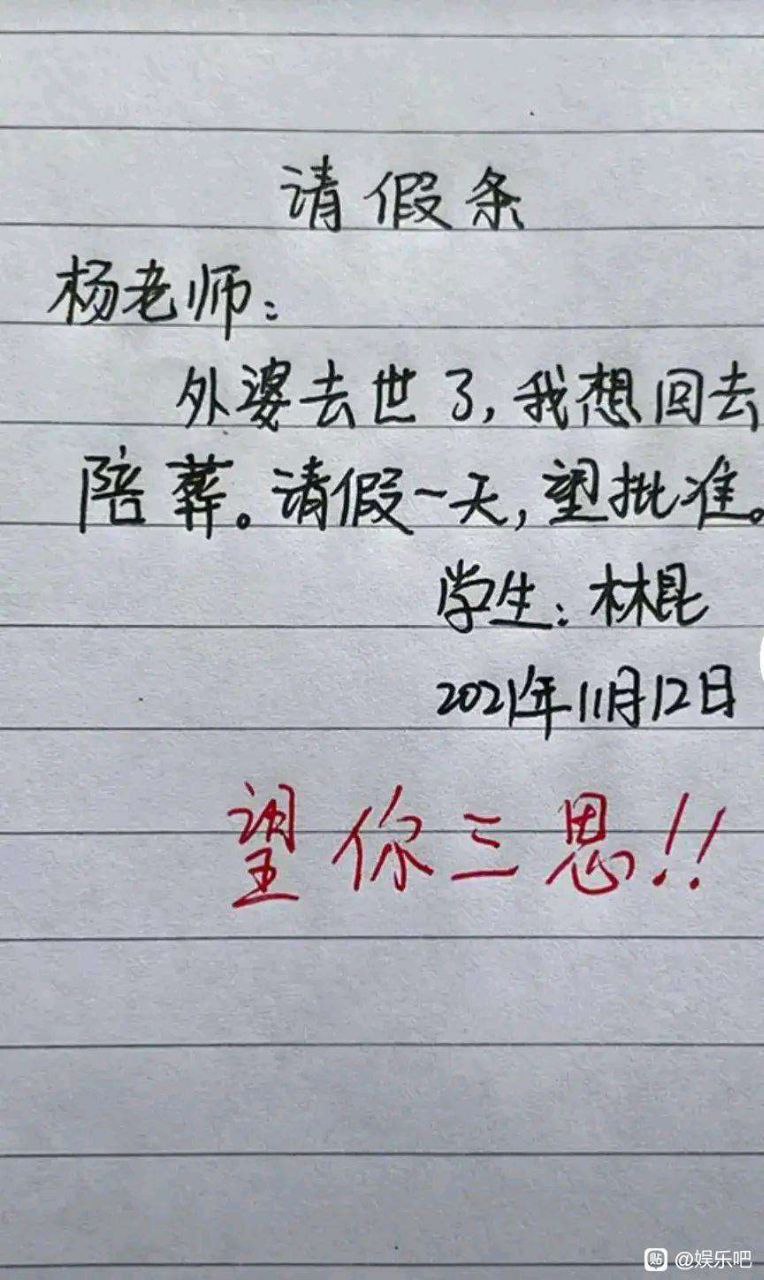 请假条
杨老师：
外婆去世了，我想回去
陪葬。请假一天，望批准。
学生：林昆
2021年11月12日
望你三思!!
贴 @娱乐吧